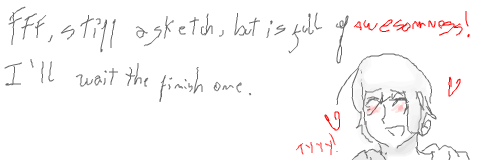 FFF, still a sketch, but is full of awesomness!
I'll wait the finish one.
TYYY!